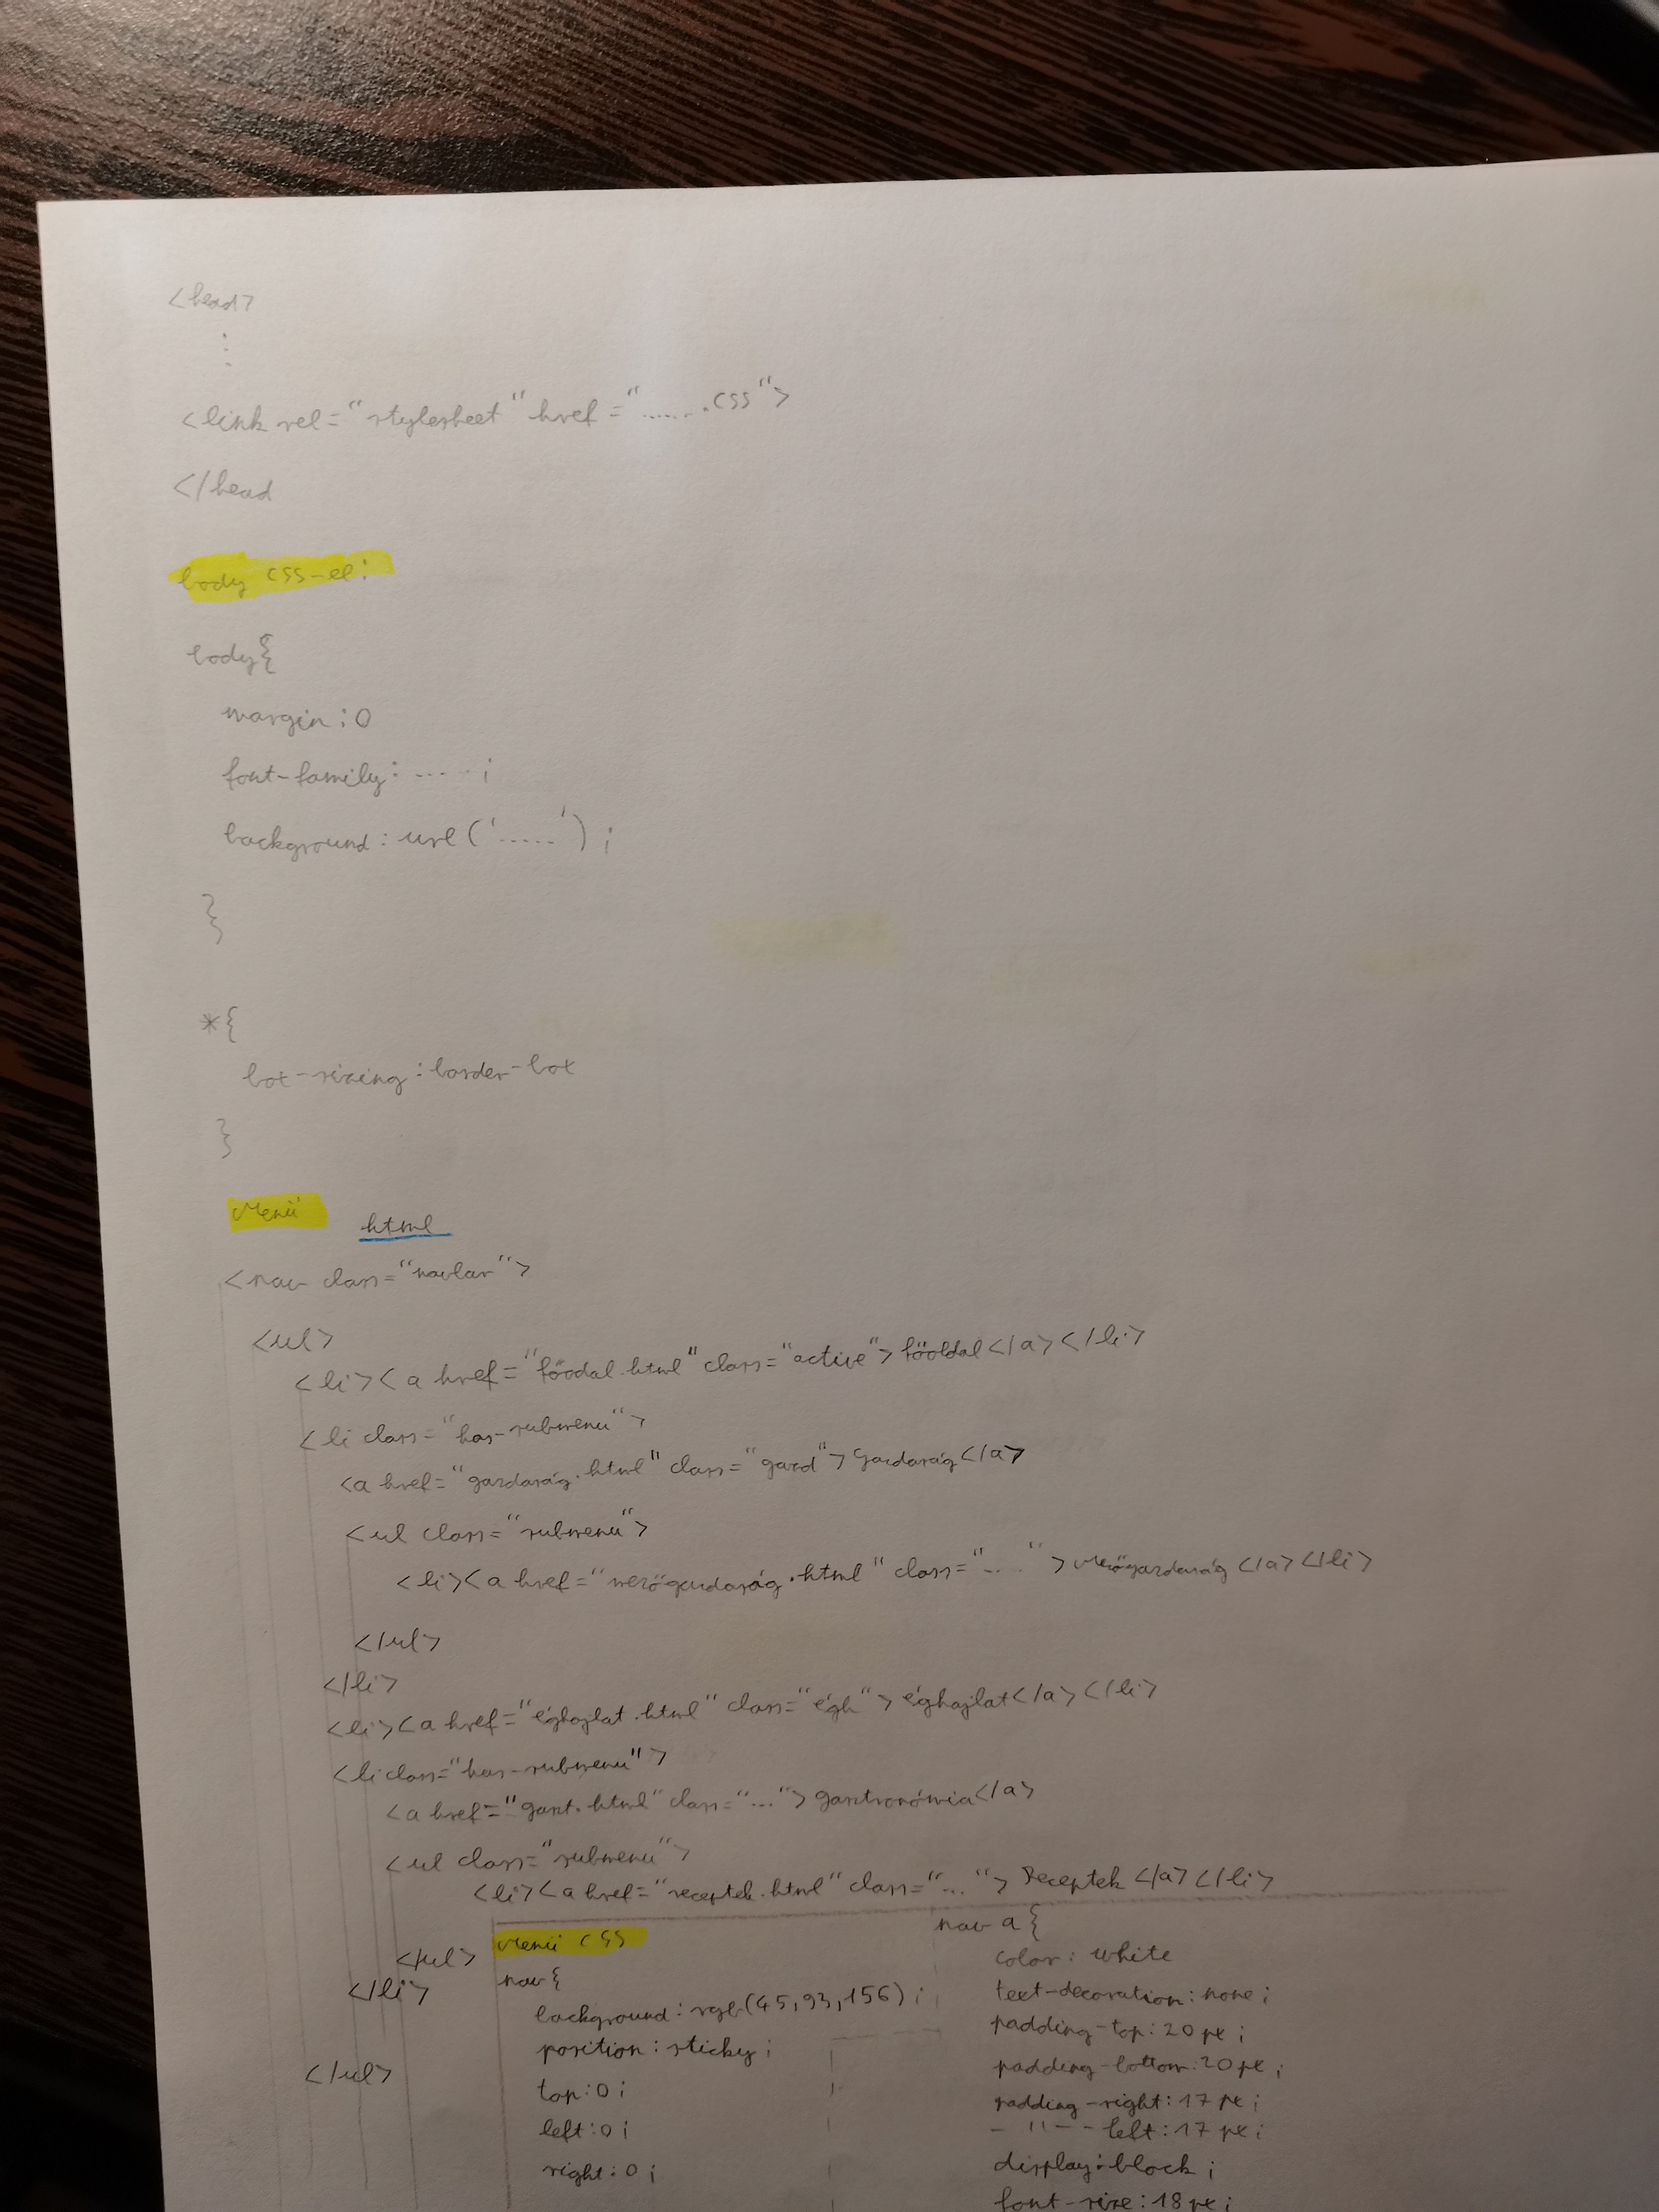 <head>
⋮
<link rel="stylesheet" href=".......css">
</head
body css-el:
body{
margin:0
font-family: ..... ;
background: url('.....') ;
}
*{
box-sizing: border-box
}
Menü html
<nav class="navbar">
<ul>
<li><a href="főodal.html" class="active">főoldal</a></li>
<li class="has-submenu">
<a href="gazdaság.html" class="gazd">Gazdaság</a>
<ul class="submenu">
<li><a href="mezőgazdaság.html" class="....">Mezőgazdaság</a></li>
</ul>
</li>
<li><a href="éghajlat.html" class="égh">éghajlat</a></li>
<li class="has-submenu">
<a href="gaszt.html" class="...">gasztronómia</a>
<ul class="submenu">
<li><a href="receptek.html" class="...">Receptek</a></li>
</ul>
</li>
</ul>
Menü CSS
nav{
background: rgb(45,93,156) ;
position: sticky ;
top:0 ;
left:0 ;
right:0 ;
nav a{
color: white
text-decoration: none ;
padding-top: 20px ;
padding-bottom: 20px ;
padding-right: 17px ;
- " - - left: 17px ;
display: block ;
font-size: 18px ;